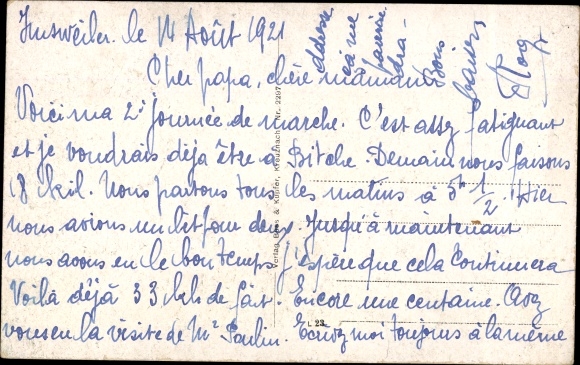 Imsweiler. le 14 Août 1921
Cher papa, chère maman
Voici ma 2e journée de marche. C'est assez fatiguant
et je voudrais déjà être à Bitche. Demain nous faisons
18 kil. Nous partons tous les matins à 5h 1/2. Hier
nous avions un lit pour deux. Jusqu'à maintenant
nous avons eu le bon temps j'espère que cela continuera
Voilà déjà 33 klt de fait. Encore une centaine. Avez
vous eu la visite de Mr Paulin. Ecrivez moi toujours à la même
adresse
ça me
parvien
dra
Bons
baisers
Rog
Verlag Boss & Kupfer, Kreuznach Nr. 2297
L 23